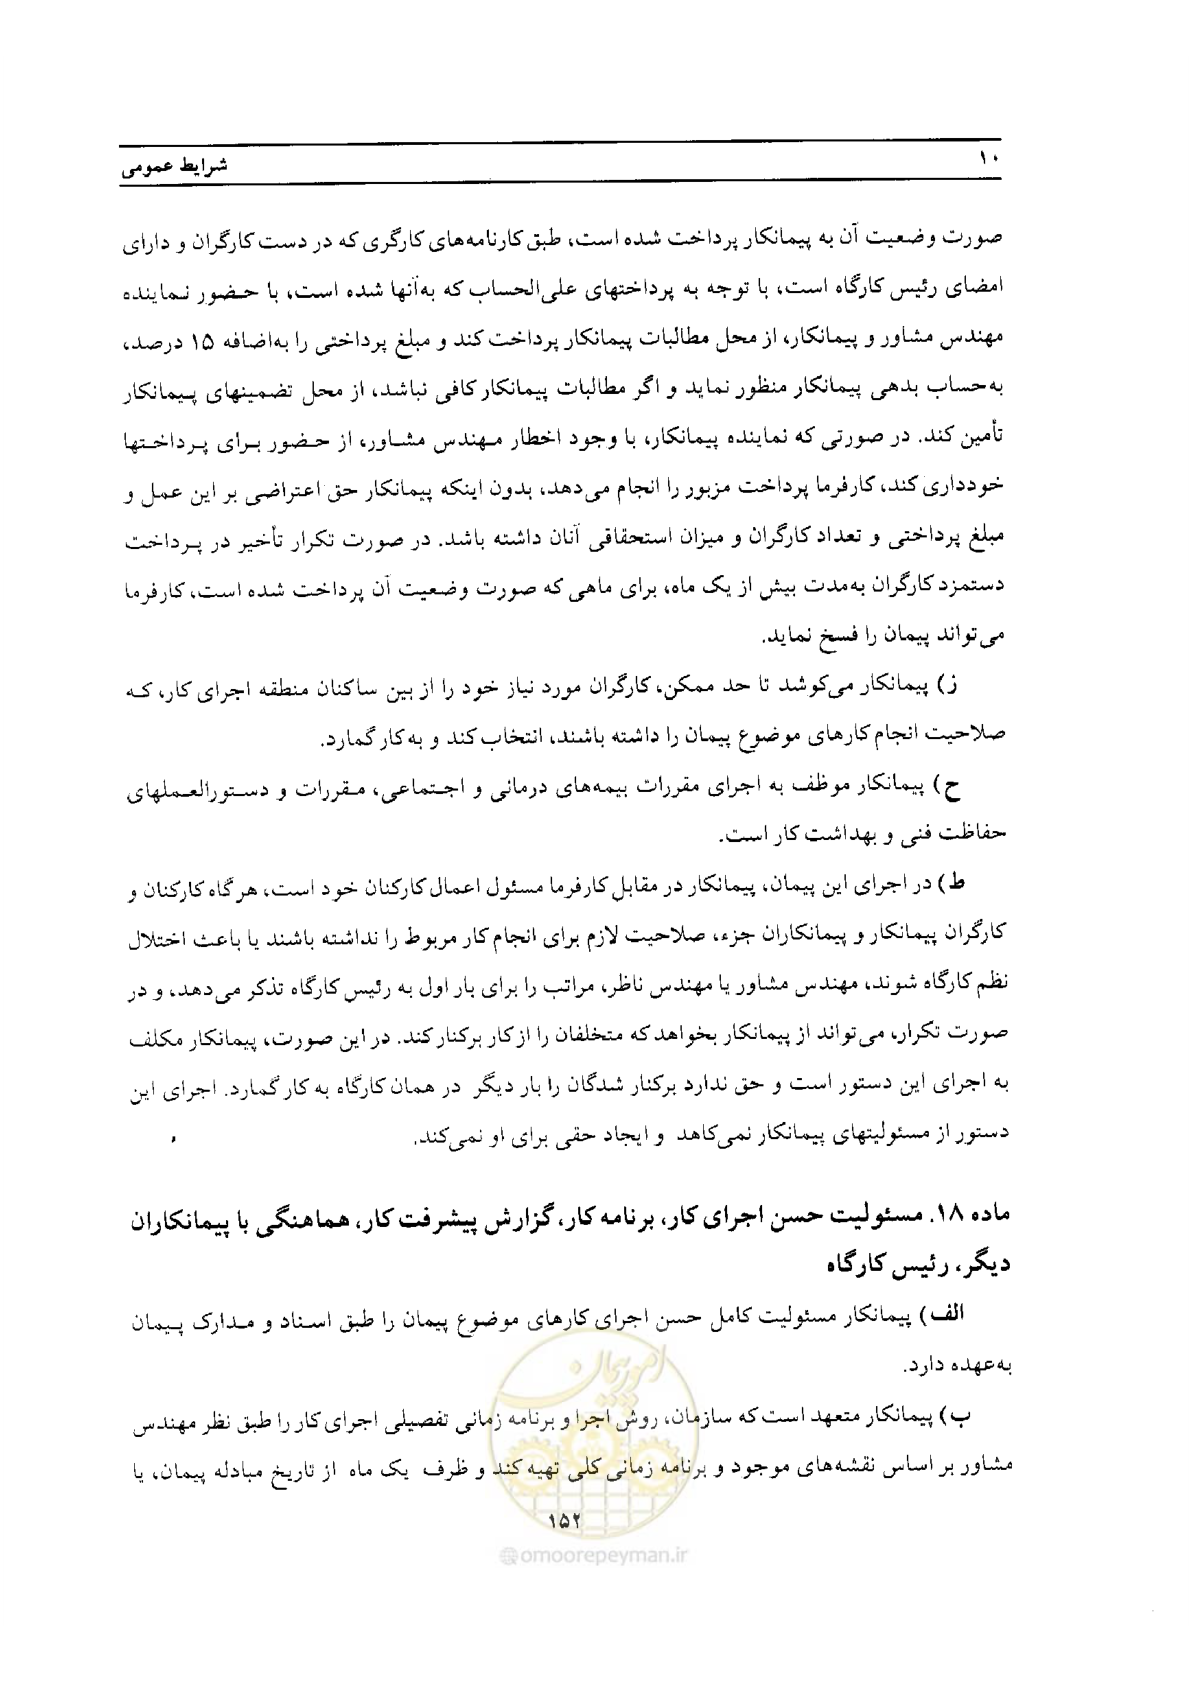 ۱۰
شرایط عمومی
صورت وضعیت آن به پیمانکار پرداخت شده است، طبق کارنامه‌های کارگری که در دست کارگران و دارای
امضای رئیس کارگاه است، با توجه به پرداختهای علی‌الحساب که به‌آنها شده است، با حضور نماینده
مهندس مشاور و پیمانکار، از محل مطالبات پیمانکار پرداخت کند و مبلغ پرداختی را به‌اضافه ۱۵ درصد،
به‌حساب بدهی پیمانکار منظور نماید و اگر مطالبات پیمانکار کافی نباشد، از محل تضمینهای پیمانکار
تأمین کند. در صورتی که نماینده پیمانکار، با وجود اخطار مهندس مشاور، از حضور برای پرداختها
خودداری کند، کارفرما پرداخت مزبور را انجام می‌دهد، بدون اینکه پیمانکار حق اعتراضی بر این عمل و
مبلغ پرداختی و تعداد کارگران و میزان استحقاقی آنان داشته باشد. در صورت تکرار تأخیر در پرداخت
دستمزد کارگران به‌مدت بیش از یک ماه، برای ماهی که صورت وضعیت آن پرداخت شده است، کارفرما
می‌تواند پیمان را فسخ نماید.
ز) پیمانکار می‌کوشد تا حد ممکن، کارگران مورد نیاز خود را از بین ساکنان منطقه اجرای کار، که
صلاحیت انجام کارهای موضوع پیمان را داشته باشند، انتخاب کند و به‌کار گمارد.
ح) پیمانکار موظف به اجرای مقررات بیمه‌های درمانی و اجتماعی، مقررات و دستورالعملهای
حفاظت فنی و بهداشت کار است.
ط) در اجرای این پیمان، پیمانکار در مقابل کارفرما مسئول اعمال کارکنان خود است، هرگاه کارکنان و
کارگران پیمانکار و پیمانکاران جزء، صلاحیت لازم برای انجام کار مربوط را نداشته باشند یا باعث اختلال
نظم کارگاه شوند، مهندس مشاور یا مهندس ناظر، مراتب را برای بار اول به رئیس کارگاه تذکر می‌دهد، و در
صورت تکرار، می‌تواند از پیمانکار بخواهد که متخلفان را از کار برکنار کند. در این صورت، پیمانکار مکلف
به اجرای این دستور است و حق ندارد برکنار شدگان را بار دیگر در همان کارگاه به کار گمارد. اجرای این
دستور از مسئولیتهای پیمانکار نمی‌کاهد و ایجاد حقی برای او نمی‌کند.
ماده ۱۸. مسئولیت حسن اجرای کار، برنامه کار، گزارش پیشرفت کار، هماهنگی با پیمانکاران
دیگر، رئیس کارگاه
الف) پیمانکار مسئولیت کامل حسن اجرای کارهای موضوع پیمان را طبق اسناد و مدارک پیمان
به‌عهده دارد.
ب) پیمانکار متعهد است که سازمان، روش اجرا و برنامه زمانی تفصیلی اجرای کار را طبق نظر مهندس
مشاور بر اساس نقشه‌های موجود و برنامه زمانی کلی تهیه کند و ظرف یک ماه از تاریخ مبادله پیمان، یا
امور پیمان
۱۵۲
@omoorepeyman.ir